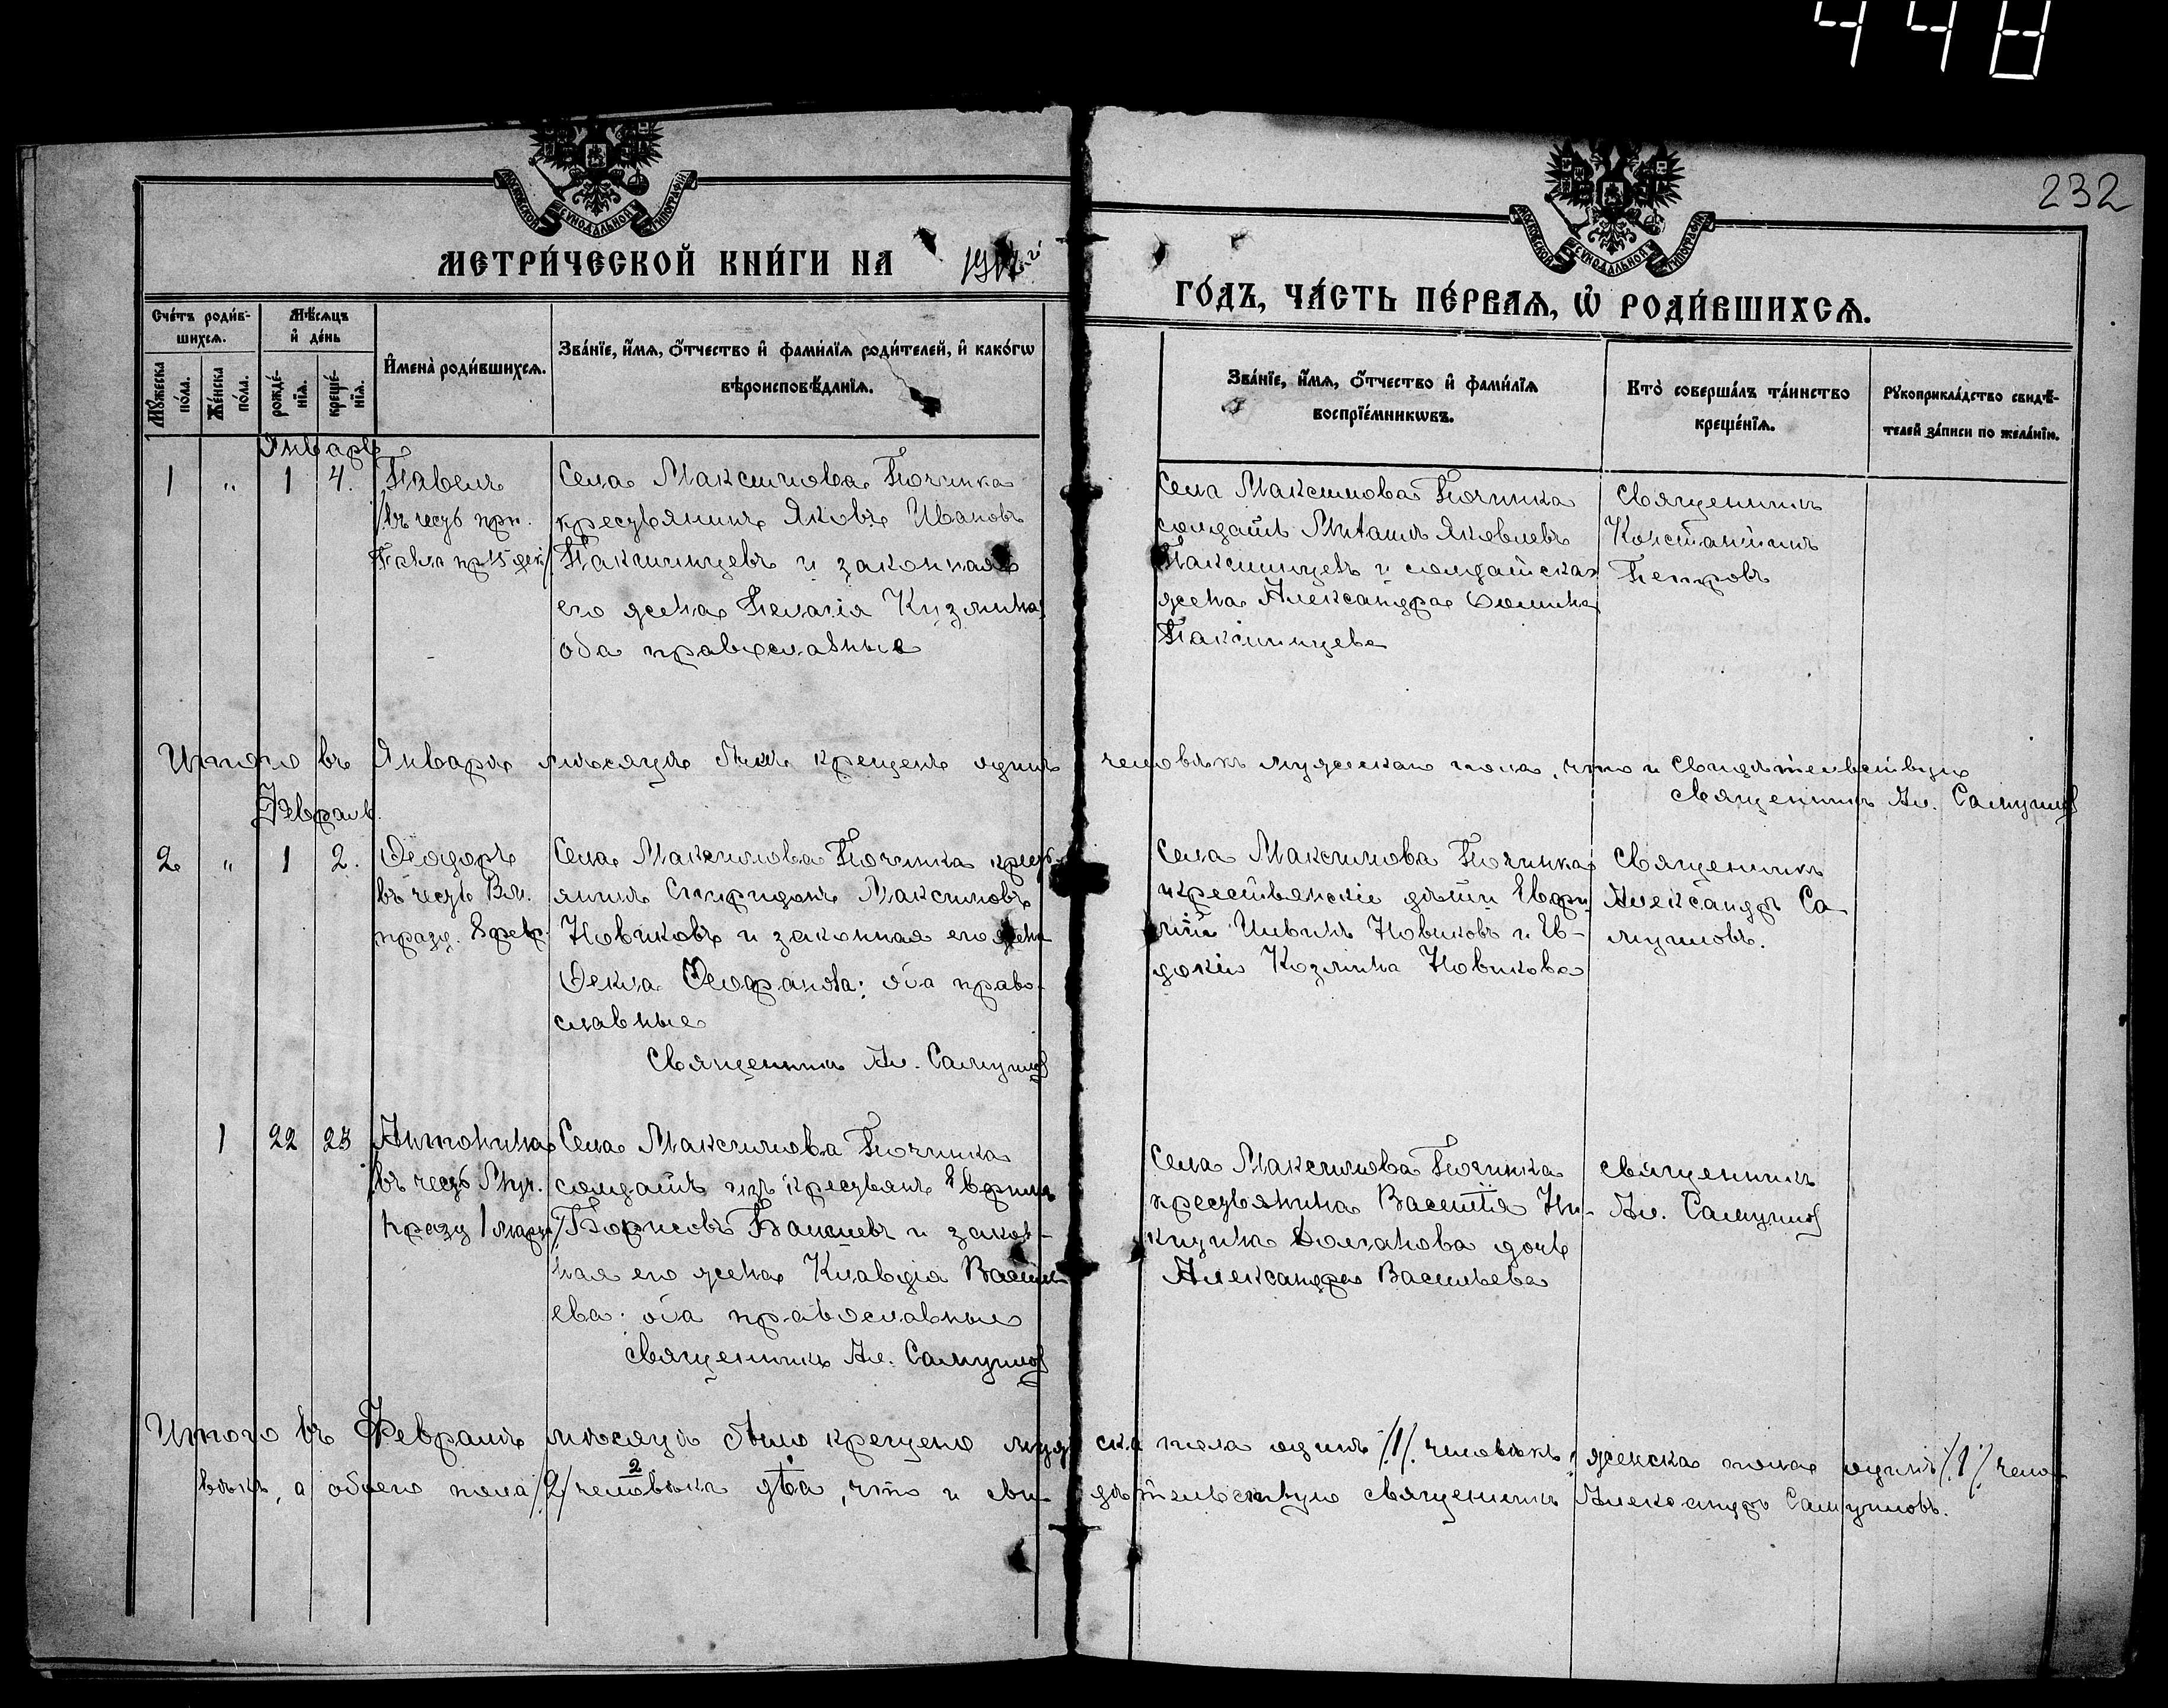 448
232
МЕТРИ́ЧЕСКОЙ КНИ́ГИ НА
ГО́ДЪ, ЧА́СТЬ ПЕ́РВАЯ, Ѡ҆ РОДИ́ВШИХСЯ.
Сче́тъ роди́в-
шихся.
Мѣ́сяцъ
и҆ де́нь
Мꙋ́жеска
по́ла.
Же́нска
по́ла.
рожде́-
нїя.
креще́-
нїя.
И҆мена̀ роди́вшихся.
Зва́нїе, и҆́мя, ѻ҆́тчество и҆ фами́лїя роди́телей, и҆ како́гѡ
вѣроисповѣ́данїя.
Зва́нїе, и҆́мя, ѻ҆́тчество и҆ фами́лїя
воспрїе́мникѡвъ.
Кто̀ соверша́лъ та́инство
креще́нїя.
Рꙋкоприкла́дство свидѣ́-
телей за́писи по жела́нїю.
Январь
1 " 1 4.
Павелъ
/въ честь пр.
Павла пр 15 дек/
Села Максимова Починка
крестьянинъ Яковъ Ивановъ
Пакшинцевъ и законная
его жена Пелагія Кузмина,
оба православные
Села Максимова Починка
солдатъ Яковлевъ
Пакшинцевъ и солдатская
жена Александра Ѳомина
Пакшинцева
Священникъ
Константинъ
Петровъ
Итого въ Январѣ мѣсяцѣ былъ крещенъ одинъ человѣкъ мужескаго пола, что и свидѣтельствую
священникъ Ал. Самуиловъ
Февраль.
2 " 1 2.
Ѳеодоръ
въ честь Вм.
празд. 8 февр.
Села Максимова Починка крест-
янинъ Спиридонъ Максимовъ
Новиковъ и законная его жена
Ѳекла Ѳеофанова; оба право-
славные
Священникъ Ал. Самуиловъ
Села Максимова Починка
крестьянскіе дѣти Евфи-
мій Новиковъ и Ев-
докія Козмина Новикова
Священникъ
Александръ Са-
муиловъ.
1 22 23
Антонина
въ честь Муч.
празд 1 март/
Села Максимова Починка
солдатъ изъ крестьянъ Евфимъ
Борисовъ и закон-
ная его жена Клавдія Василь-
ева; оба православные
священникъ Ал. Самуиловъ
Села Максимова Починка
крестьянина Василія Ни-
китина дочь
Александра Васильева
священникъ
Ал. Самуиловъ
Итого въ Февралѣ мѣсяцѣ было крещено мужска пола одинъ /1/ человѣкъ, женска пола одинъ /1/ чело-
вѣкъ, а обоего пола /2/ человѣка два, что и свидѣтельствую священникъ Александръ Самуиловъ.